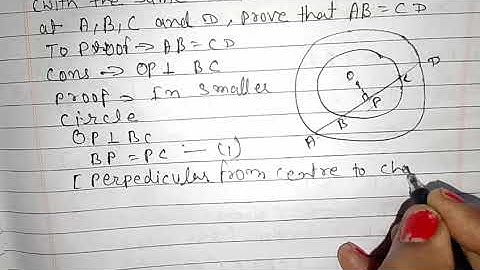 (with the same
at A, B, C and D, prove that AB = CD
To Proof → AB = CD
Cons → OP ⊥ BC
Proof → In smaller
Circle
OP ⊥ BC
BP = PC — (1)
[Perpedicular from centre to cho
O
P
B
A
C
D